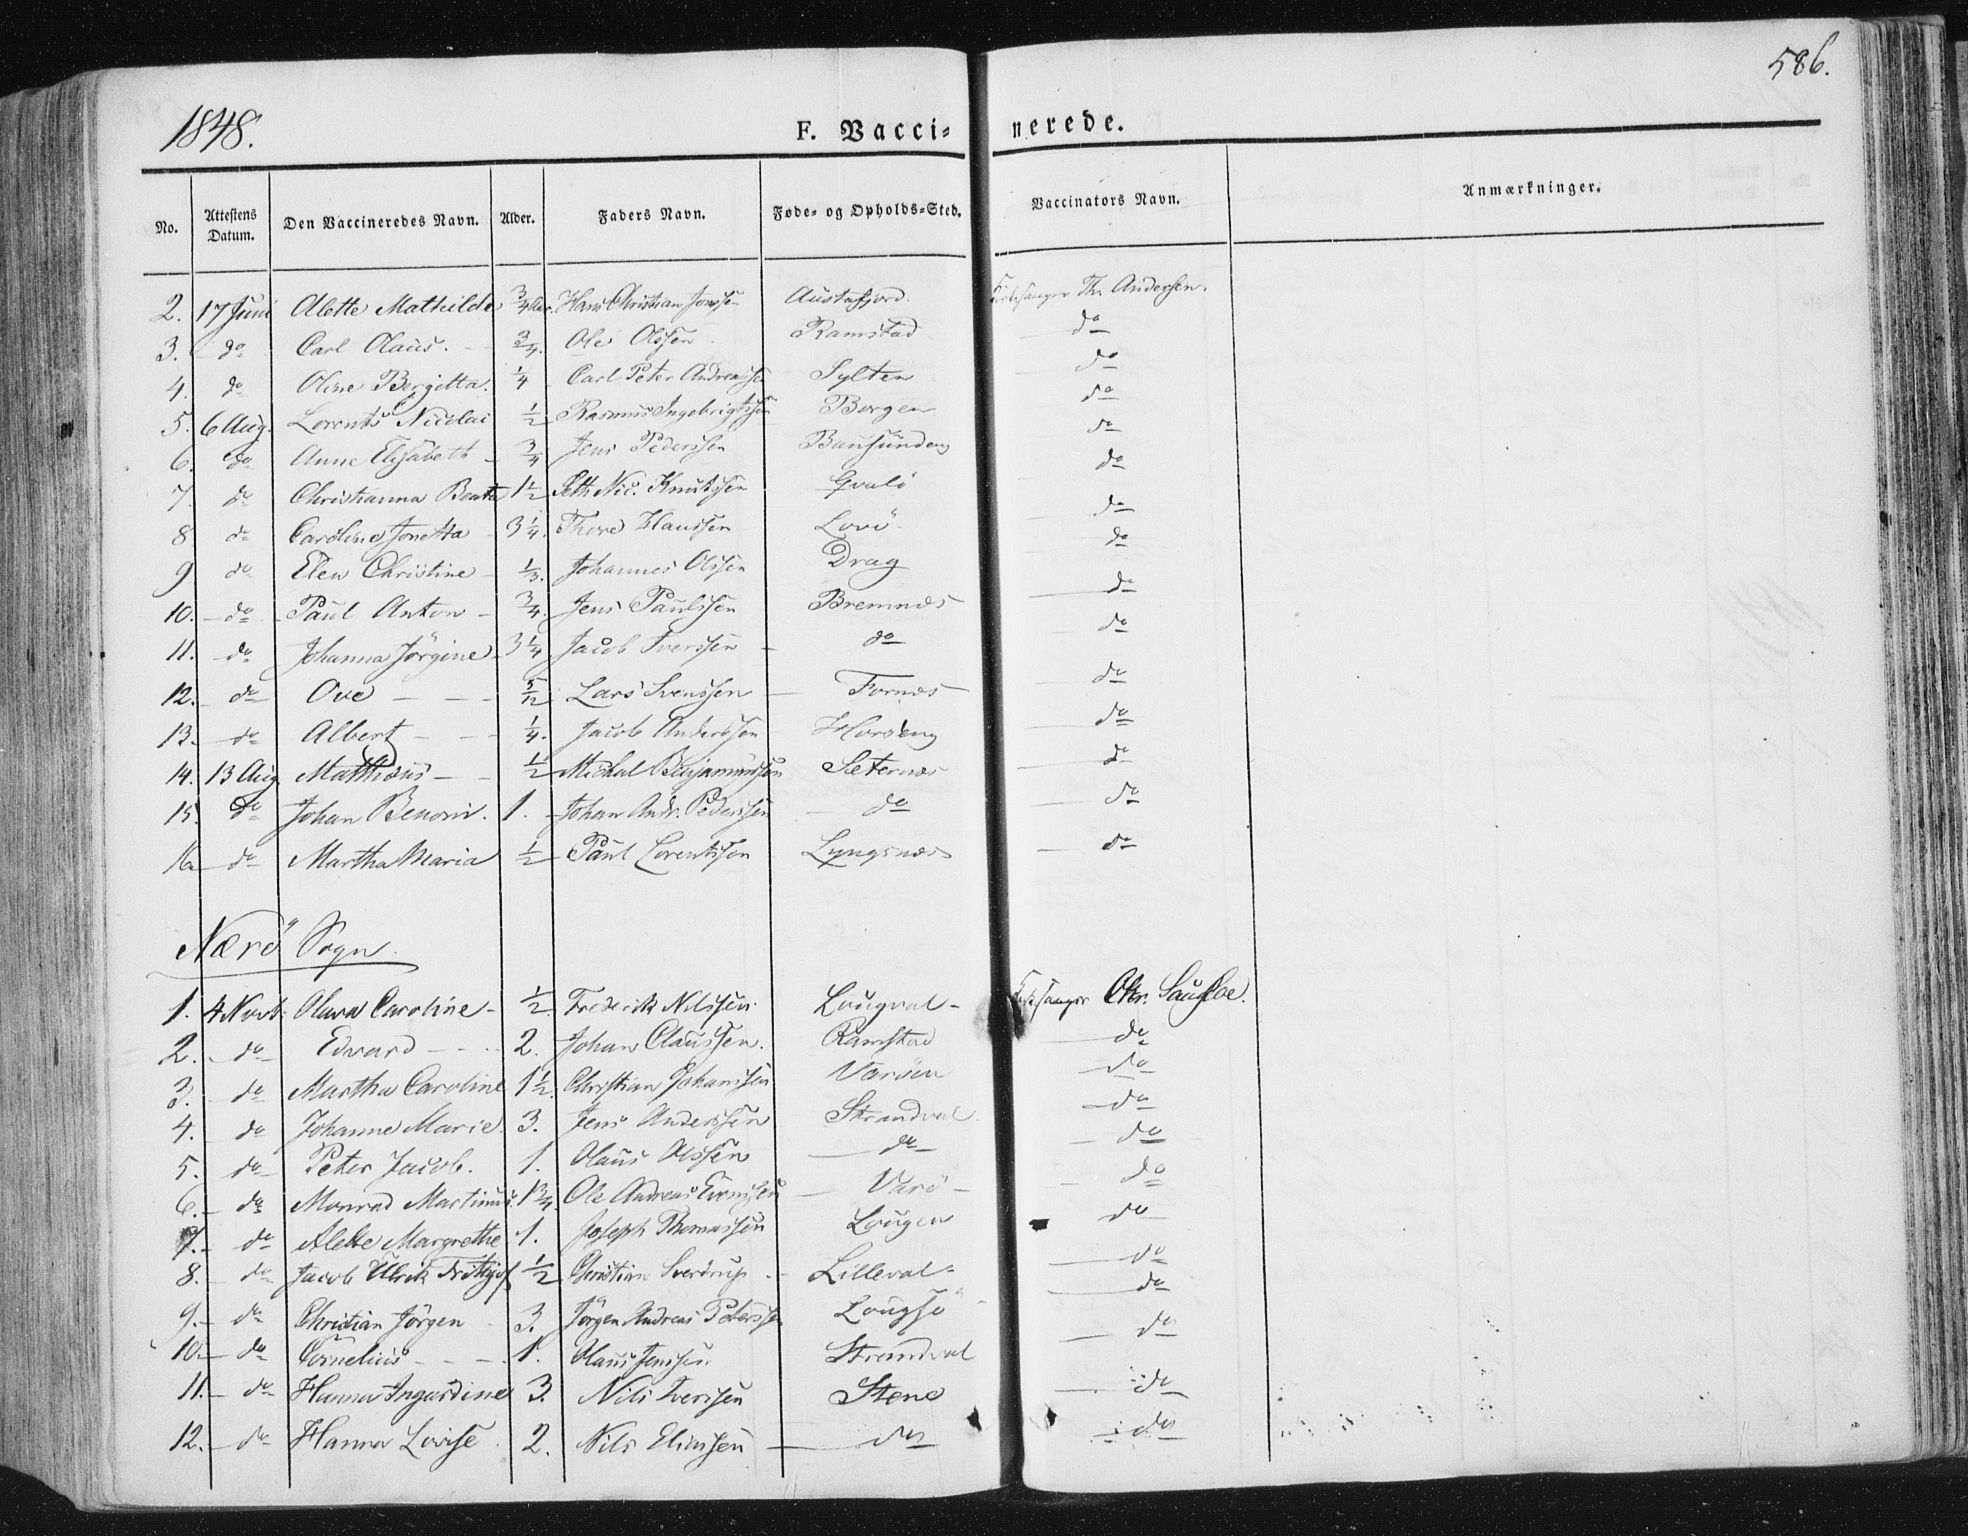 1848.
586.
F. Vacci= nerede.
No. Attestens Datum. Den Vaccineredes Navn. Alder. Faders Navn. Føde= og Opholds=Sted. Vaccinators Navn. Anmærkninger.
2. 17 Juni Alette Mathilde 3/4 Aar. Hans Christian Jonssen Austafjord. Kirkesanger Th. Andersen.
3. do Carl Olaus. 3/4. Ole Olssen Ramstad do
4. do Oline Bergitta. 1/4 Carl Peter Andreassen Sylten do
5. 6 Aug. Lorents Nicolai 1/2 Rasmus Ingebrigtssen Borgen do
6. do Anne Elisabeth 3/4 Jens Pederssen Bausunden do
7. do Christianna Beata 1 1/2 Peth Nic. Knutssen Qvalö do
8 do Caroline Jonetta 3 1/4. Thore Hanssen Lovö do
9 do Elen Christine 1/3. Johannes Olssen Drag do
10. do Paul Anton 3/4. Jens Paulssen Bremnæs do
11. do Johanna Jörgine 3 1/4 Jacob Iverssen do do
12. do Ove 5/12 Lars Svenssen Fornæs do
13. do Albert 1/4. Jacob Anderssen Horseng do
14. 13 Aug Matthæus 1/2 Michal Benjaminssen Sæternæs do
15. do Johan Benoni. 1. Johan Andr. Pederssen do do
16 do Martha Maria 1/2 Paul Lorentssen Lyngsnæs do
Nærö Sogn.
1. 4 Novb. Olava Caroline 1/2 Frederik Nilssen Lougval Kirkesanger Chr. Saugloe.
2. do Edvard 2. Johan Claussen. Ramstad do
3. do Martha Caroline 1 1/2. Christian Johanssen Varöen do
4. do Johanne Marie. 3. Jens Anderssen Strandval do
5. do Peter Jacob. 1. Olaus Olssen do do
6. do Monrad Martinus. 1 3/4. Ole Andreas Evenssen Varö do
7. do Alette Margrethe 1. Joseph Thomassen Lougen do
8. do Jacob Ulrik Fritjof 1/2 Christian Sverdrup Lilleval do
9. do Christian Jörgen 3. Jörgen Andreas Peterssen Lougsö do
10. do Cornelius 1. Olaus Jenssen Strandval do
11. do Hanna Ingardine 3. Nils Iverssen Stene do
12. do Hanna Lovise 2. Nils Eliassen do do